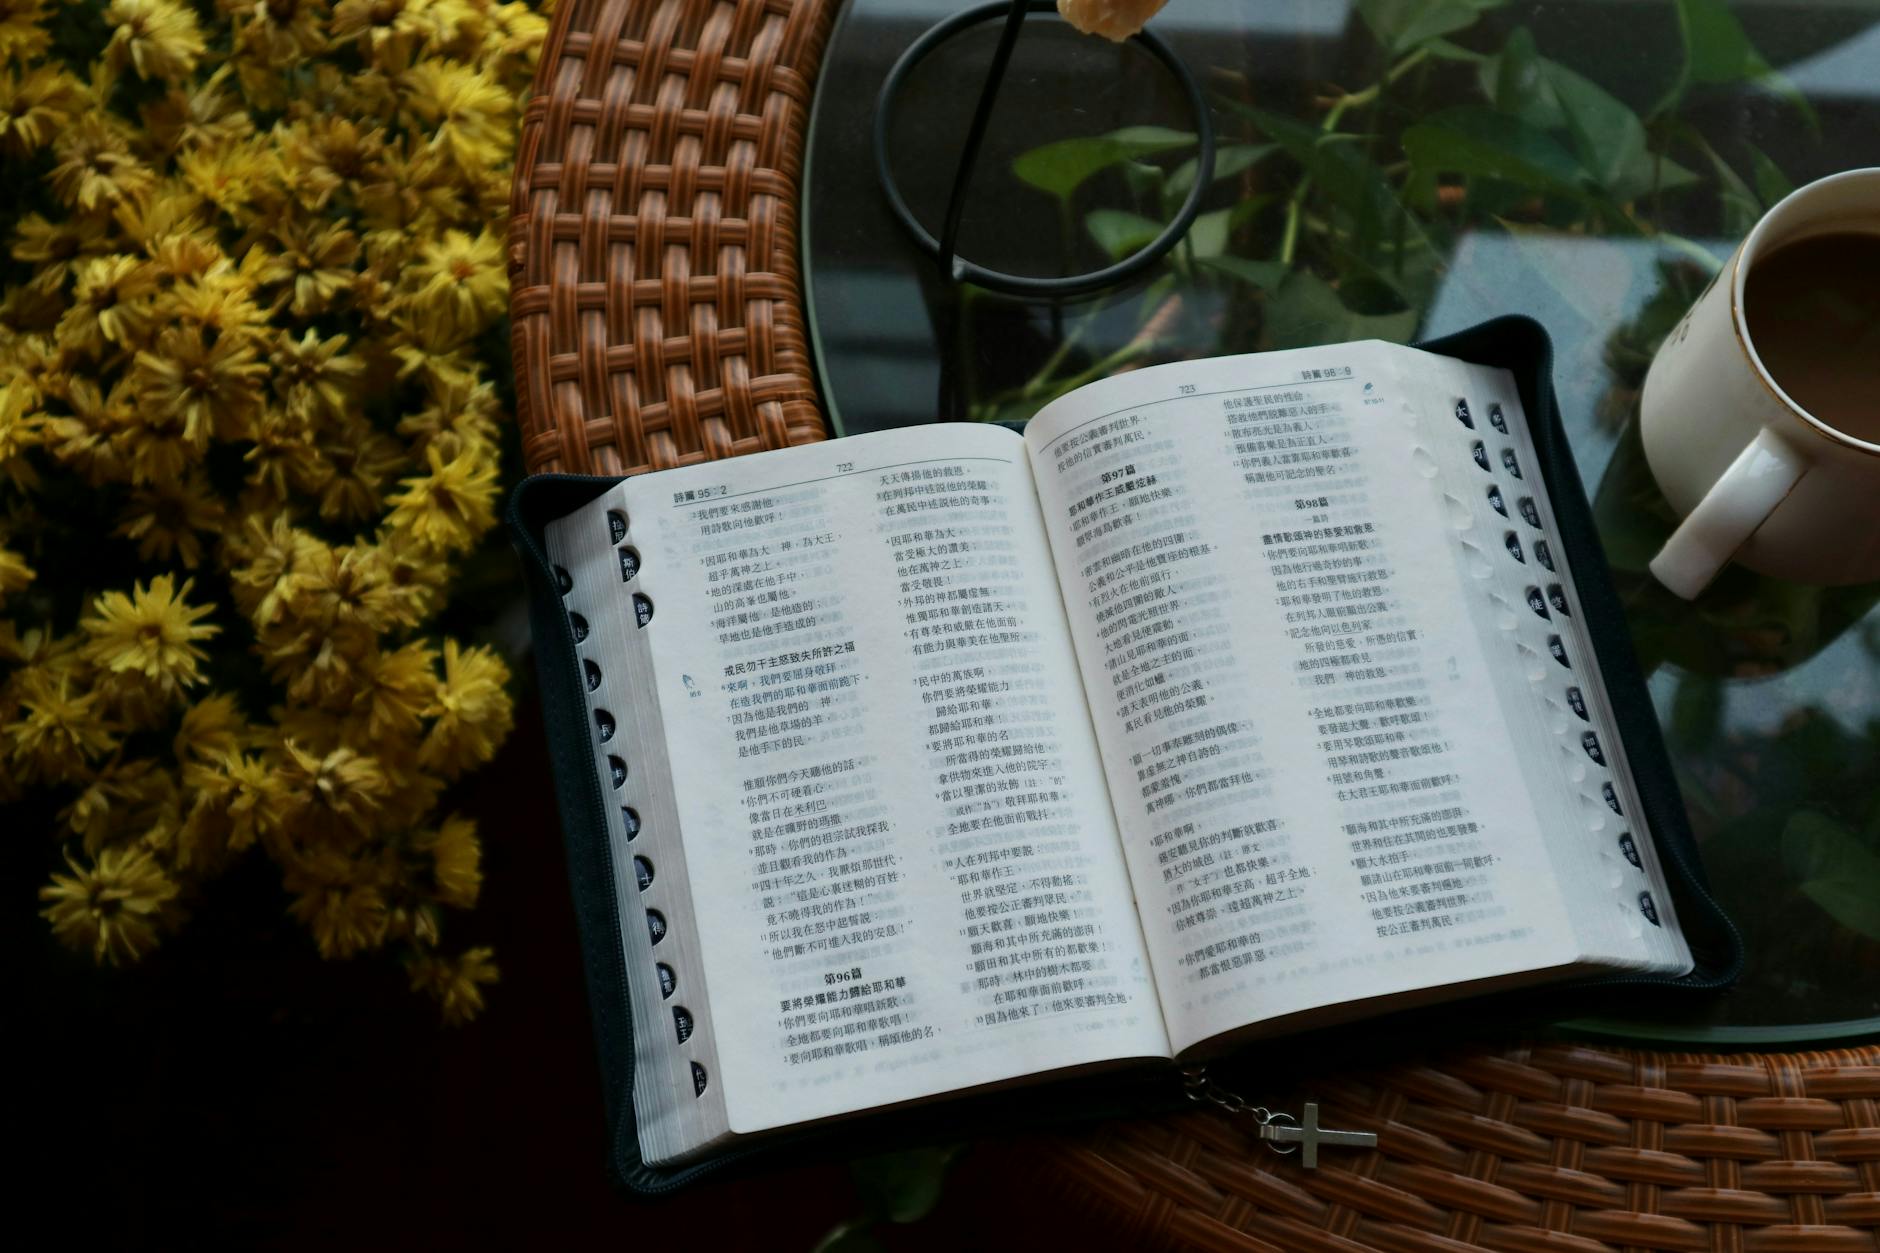 詩篇 95：2
722
²我們要來感謝他，
用詩歌向他歡呼！
³因耶和華為大　神，為大王，
超乎萬神之上。
⁴地的深處在他手中，
山的高峯也屬他。
⁵海洋屬他，是他造的；
旱地也是他手造成的。
戒民勿干主怒致失所許之福
⁶來啊，我們要屈身敬拜，
在造我們的耶和華面前跪下。
⁷因為他是我們的　神，
我們是他草場的羊，
是他手下的民。
惟願你們今天聽他的話。
⁸你們不可硬着心，
像當日在米利巴，
就是在曠野的瑪撒。
⁹那時，你們的祖宗試我探我，
並且觀看我的作為。
¹⁰四十年之久，我厭煩那世代，
說：“這是心裏迷糊的百姓，
竟不曉得我的作為！”
¹¹所以我在怒中起誓說：
“他們斷不可進入我的安息！”
第96篇
要將榮耀能力歸給耶和華
¹你們要向耶和華唱新歌，
全地都要向耶和華歌唱！
²要向耶和華歌唱，稱頌他的名，
天天傳揚他的救恩。
³在列邦中述說他的榮耀，
在萬民中述說他的奇事。
⁴因耶和華為大，
當受極大的讚美；
他在萬神之上，
當受敬畏！
⁵外邦的神都屬虛無，
惟獨耶和華創造諸天。
⁶有尊榮和威嚴在他面前，
有能力與華美在他聖所。
⁷民中的萬族啊，
你們要將榮耀能力
歸給耶和華，
都歸給耶和華！
⁸要將耶和華的名
所當得的榮耀歸給他，
拿供物來進入他的院宇。
⁹當以聖潔的妝飾（註：“的”
或作“為”）敬拜耶和華，
全地要在他面前戰抖。
¹⁰人在列邦中要說：
“耶和華作王，
世界就堅定，不得動搖；
他要按公正審判眾民。”
¹¹願天歡喜，願地快樂！
願海和其中所充滿的澎湃！
¹²願田和其中所有的都歡樂！
那時，林中的樹木都要
在耶和華面前歡呼。
¹³因為他來了，他來要審判全地。
723
詩篇 98：9
他要按公義審判世界，
按他的信實審判萬民。
第97篇
耶和華作王威嚴炫赫
¹耶和華作王，願地快樂，
願眾海島歡喜！
²密雲和幽暗在他的四圍，
公義和公平是他寶座的根基。
³有烈火在他前頭行，
燒滅他四圍的敵人。
⁴他的閃電光照世界，
大地看見便震動。
⁵諸山見耶和華的面，
就是全地之主的面，
便消化如蠟。
⁶諸天表明他的公義，
萬民看見他的榮耀。
⁷願一切事奉雕刻的偶像、
靠虛無之神自誇的，
都蒙羞愧。
萬神哪，你們都當拜他。
⁸耶和華啊，
錫安聽見你的判斷就歡喜，
猶大的城邑（註：原文
作“女子”）也都快樂。
⁹因為你耶和華至高，超乎全地；
你被尊崇，遠超萬神之上。
¹⁰你們愛耶和華的
都當恨惡罪惡，
他保護聖民的性命，
搭救他們脫離惡人的手。
¹¹散布亮光是為義人，
預備喜樂是為正直人。
¹²你們義人當靠耶和華歡喜，
稱謝他可記念的聖名。
第98篇
一篇詩
盡情歌頌神的慈愛和救恩
¹你們要向耶和華唱新歌，
因為他行過奇妙的事，
他的右手和聖臂施行救恩。
²耶和華發明了他的救恩，
在列邦人眼前顯出公義。
³記念他向以色列家
所發的慈愛，所憑的信實；
地的四極都看見
我們　神的救恩。
⁴全地都要向耶和華歡樂，
要發起大聲，歡呼歌頌！
⁵要用琴歌頌耶和華，
用琴和詩歌的聲音歌頌他！
⁶用號和角聲，
在大君王耶和華面前歡呼！
⁷願海和其中所充滿的澎湃，
世界和住在其間的也要發聲。
⁸願大水拍手，
願諸山在耶和華面前一同歡呼。
⁹因為他來要審判遍地。
他要按公義審判世界，
按公正審判萬民。
斯伯
詩篇
太
可
路
徒
啓
羅